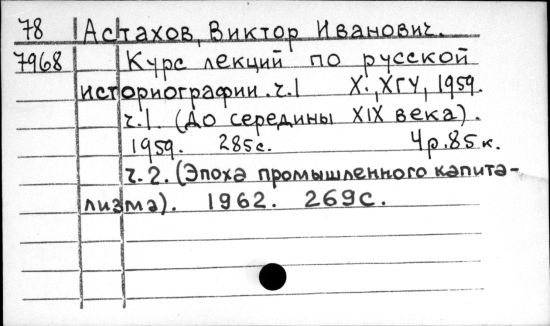 78 Астахов, Виктор Иванович.
7968 Курс лекций по русской
историографии. ч.1 Х., ХГУ, 1959.
ч.1. (До середины XIX века).
1959. 285с. 4р.85к.
ч.2. (Эпоха промышленного капита-
лизма). 1962. 269с.